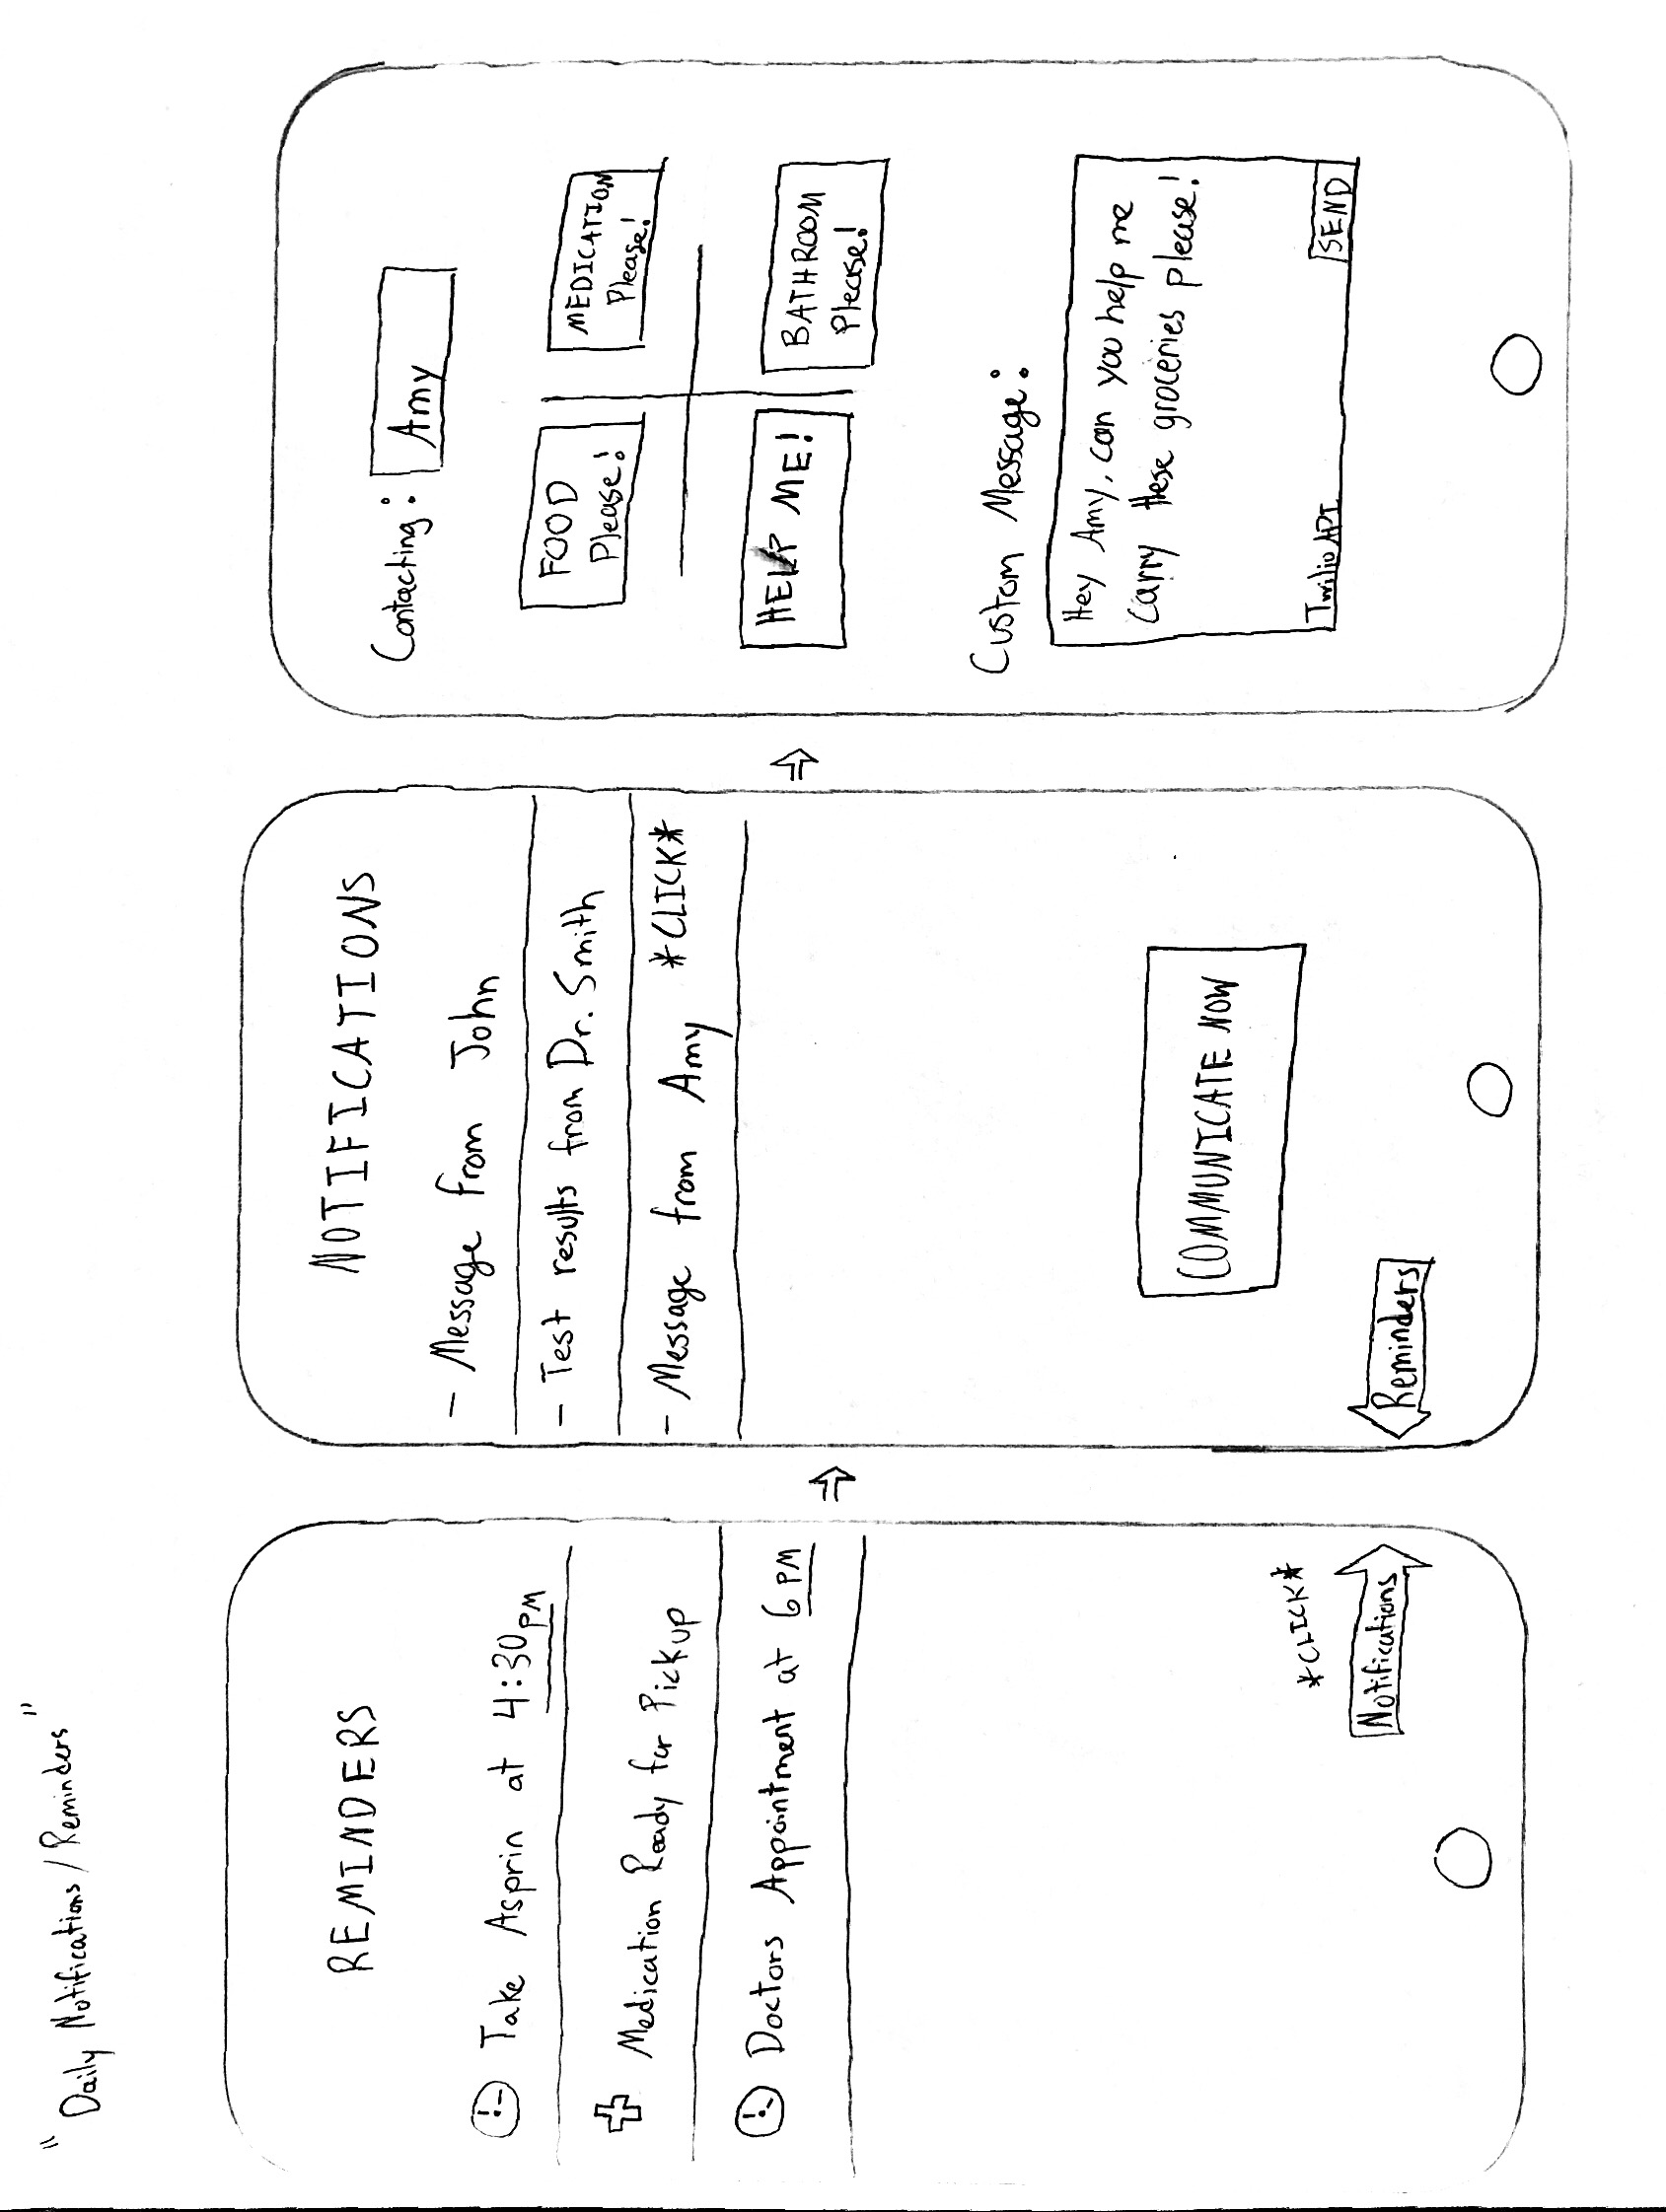 "Daily Notifications/Reminders"
REMINDERS
Take Asprin at 4:30PM
Medication Ready for Pickup
Doctors Appointment at 6PM
*CLICK*
Notifications
NOTIFICATIONS
- Message from John
- Test results from Dr. Smith
- Message from Amy *CLICK*
COMMUNICATE NOW
Reminders
Contacting: Amy
FOOD
Please!
MEDICATION
Please!
HELP ME!
BATHROOM
Please!
Custom Message:
Hey Amy, can you help me
carry these groceries please!
Twilio API
SEND